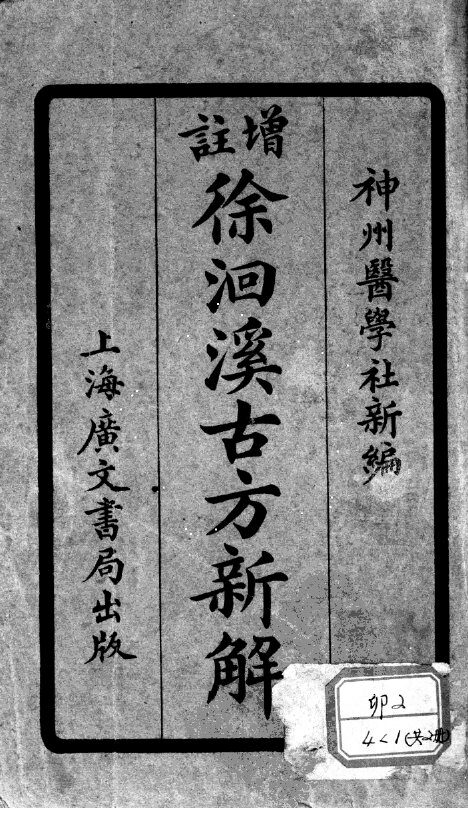 神州醫學社新編
增註
徐洄溪古方新解
上海廣文書局出版
卯2
4<1(共2册)